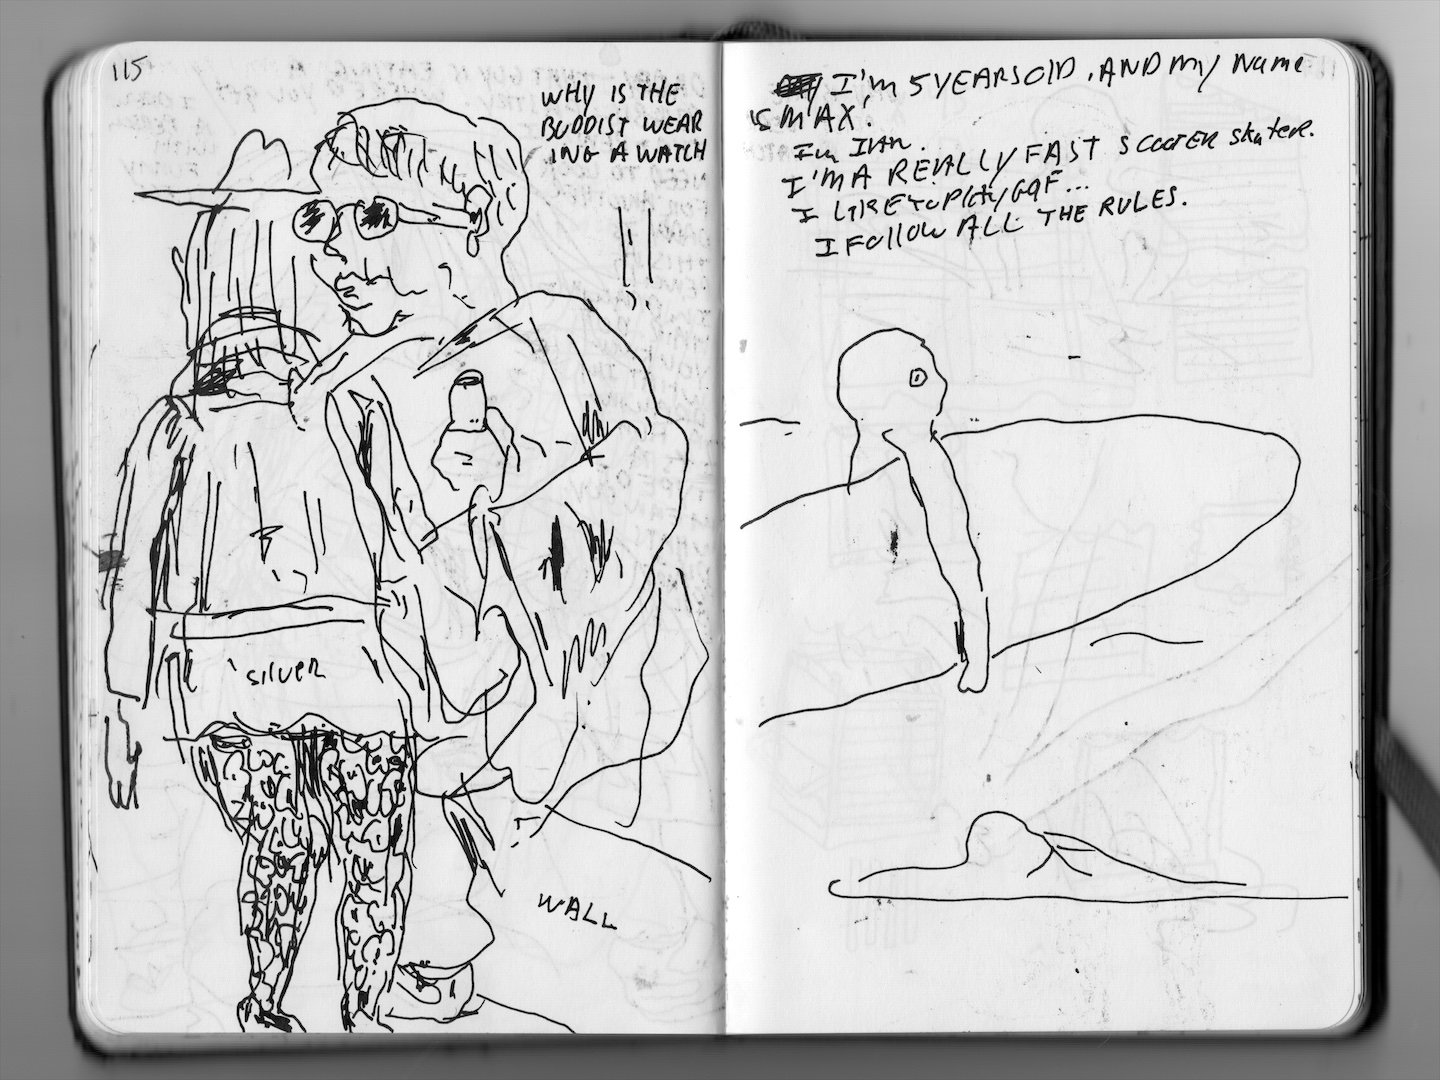 115
WHY IS THE
BUDDIST WEAR
ING A WATCH
SILVER
WALL
I'm 5 YEARS OLD, AND my name
is MAX!
I'm IAN.
I'M A REALLY FAST SCOOTER skater.
I LIKE TO PLAY GOF...
I Follow ALL THE RULES.